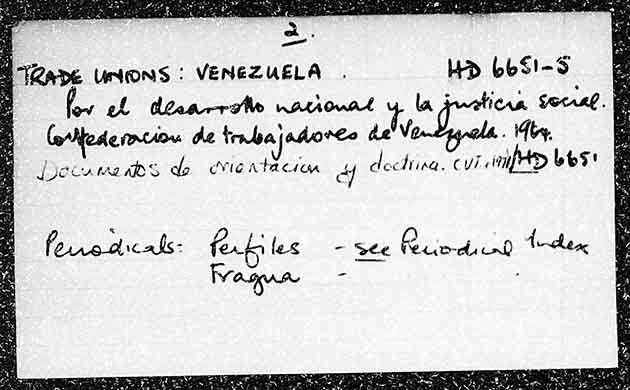 2.
TRADE UNIONS: VENEZUELA. HD 6651-5
Por el desarrollo nacional y la justicia social.
Confederacion de trabajadores de Venezuela. 1964.
Documentos de orientacion y doctrina. CVT. /HD 6651
Periodicals: Perfiles - see Periodical Index
Fragua -